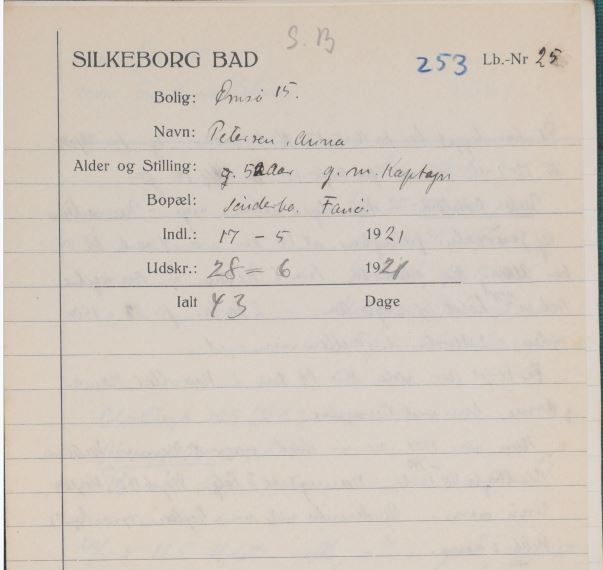 S. B
SILKEBORG BAD 253 Lb.-Nr 25
Bolig: Ørnsø 15.
Navn: Petersen, Anna
Alder og Stilling: g. 52 Aar g. m. Kaptajn
Bopæl: Sønderho. Fanø.
Indl.: 17 - 5 1921
Udskr.: 28 = 6 1921
Ialt 43 Dage